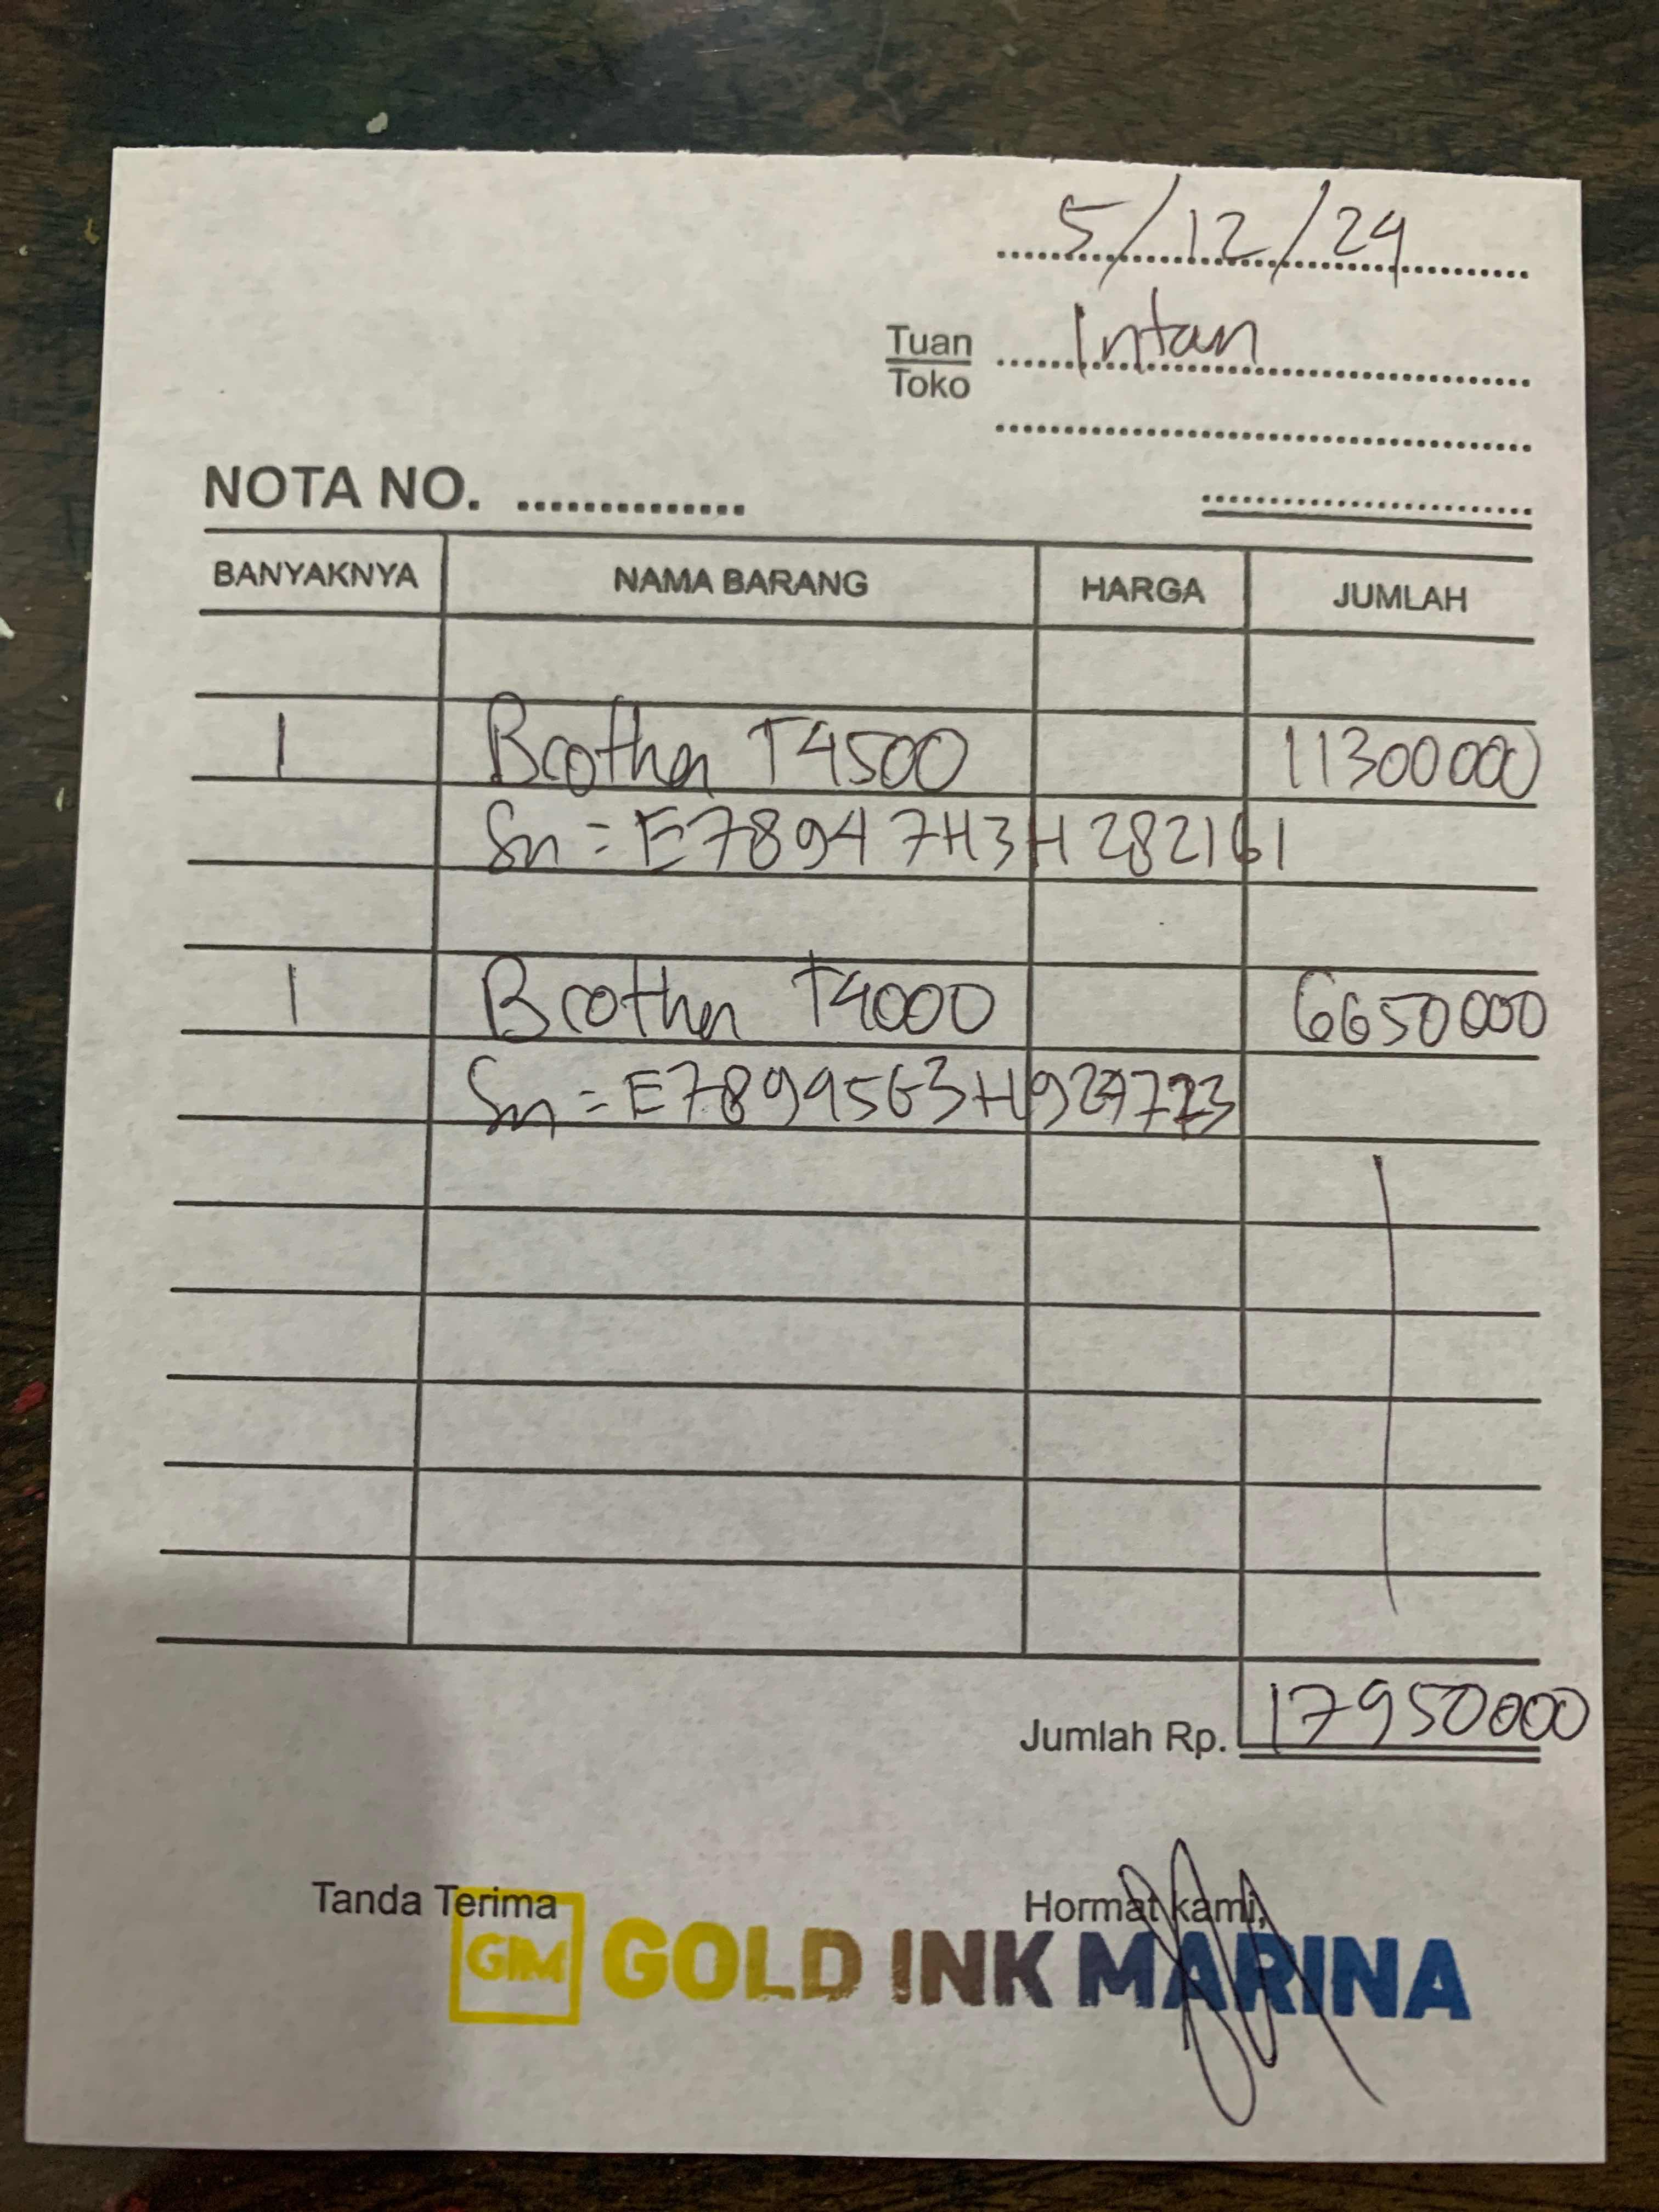 5/12/24
Tuan
Toko
Intan
NOTA NO.
BANYAKNYA NAMA BARANG HARGA JUMLAH
1 Brother T4500 11300000
Sn = E78947H3H282161
1 Brother T4000 6650000
Sn =
Jumlah Rp. 17950000
Tanda Terima Hormat kami,
GIM GOLD INK MARINA